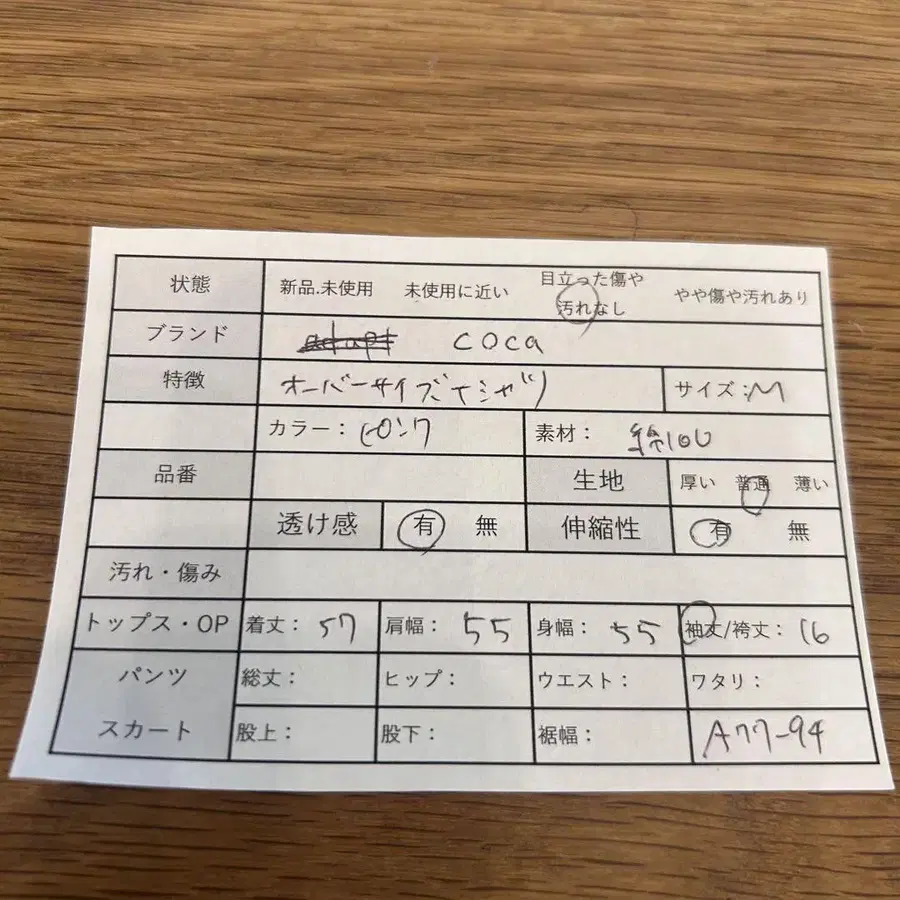 状態 新品.未使用 未使用に近い 目立った傷や汚れなし やや傷や汚れあり
ブランド coca
特徴 オーバーサイズTシャツ サイズ:M
カラー:ピンク 素材: 綿100
品番 生地 厚い 普通 薄い
透け感 有 無 伸縮性 有 無
汚れ・傷み
トップス・OP 着丈:57 肩幅:55 身幅:55 袖丈/袴丈:16
パンツ 総丈: ヒップ: ウエスト: ワタリ:
スカート 股上: 股下: 裾幅: A77-94